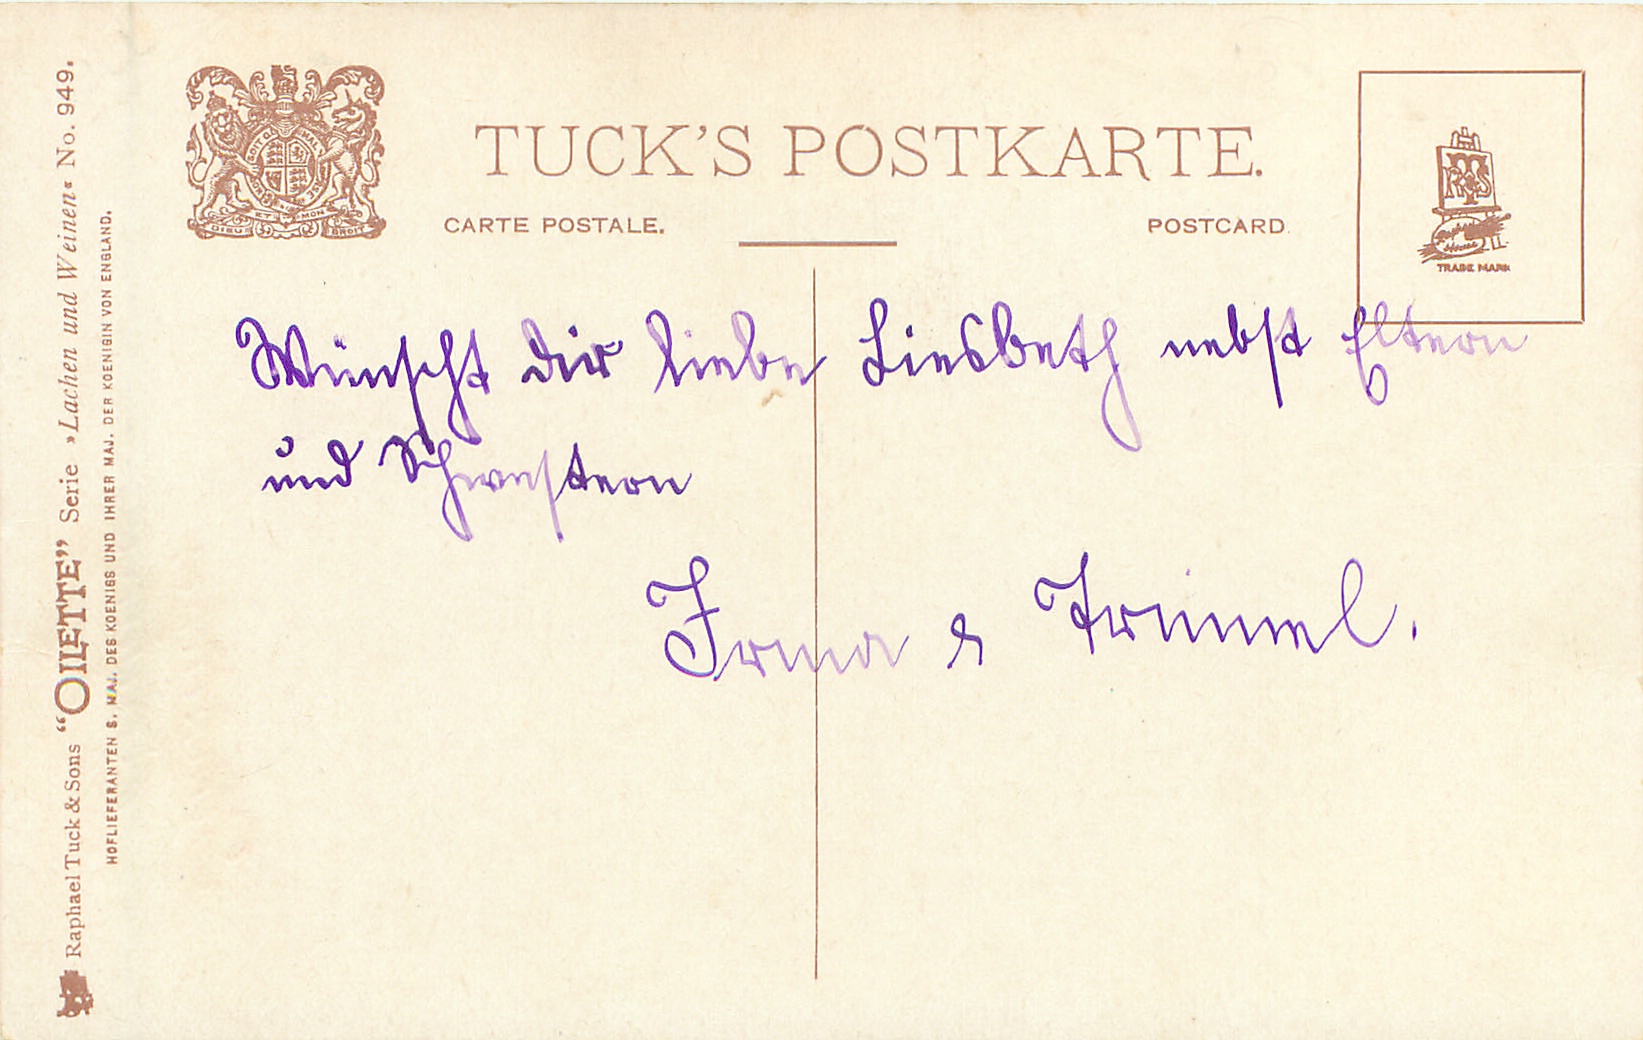 TUCK'S POSTKARTE.
CARTE POSTALE.
POSTCARD
TRADE MARK
DIEU ET MON DROIT
HONI SOIT QUI MAL Y PENSE
Wünscht dir liebe Liesbeth nebst Eltern
und Schwestern
Irma &
Raphael Tuck & Sons “OILETTE” Serie »Lachen und Weinen« No. 949.
HOFLIEFERANTEN S. MAJ. DES KOENIGS UND IHRER MAJ. DER KOENIGIN VON ENGLAND.